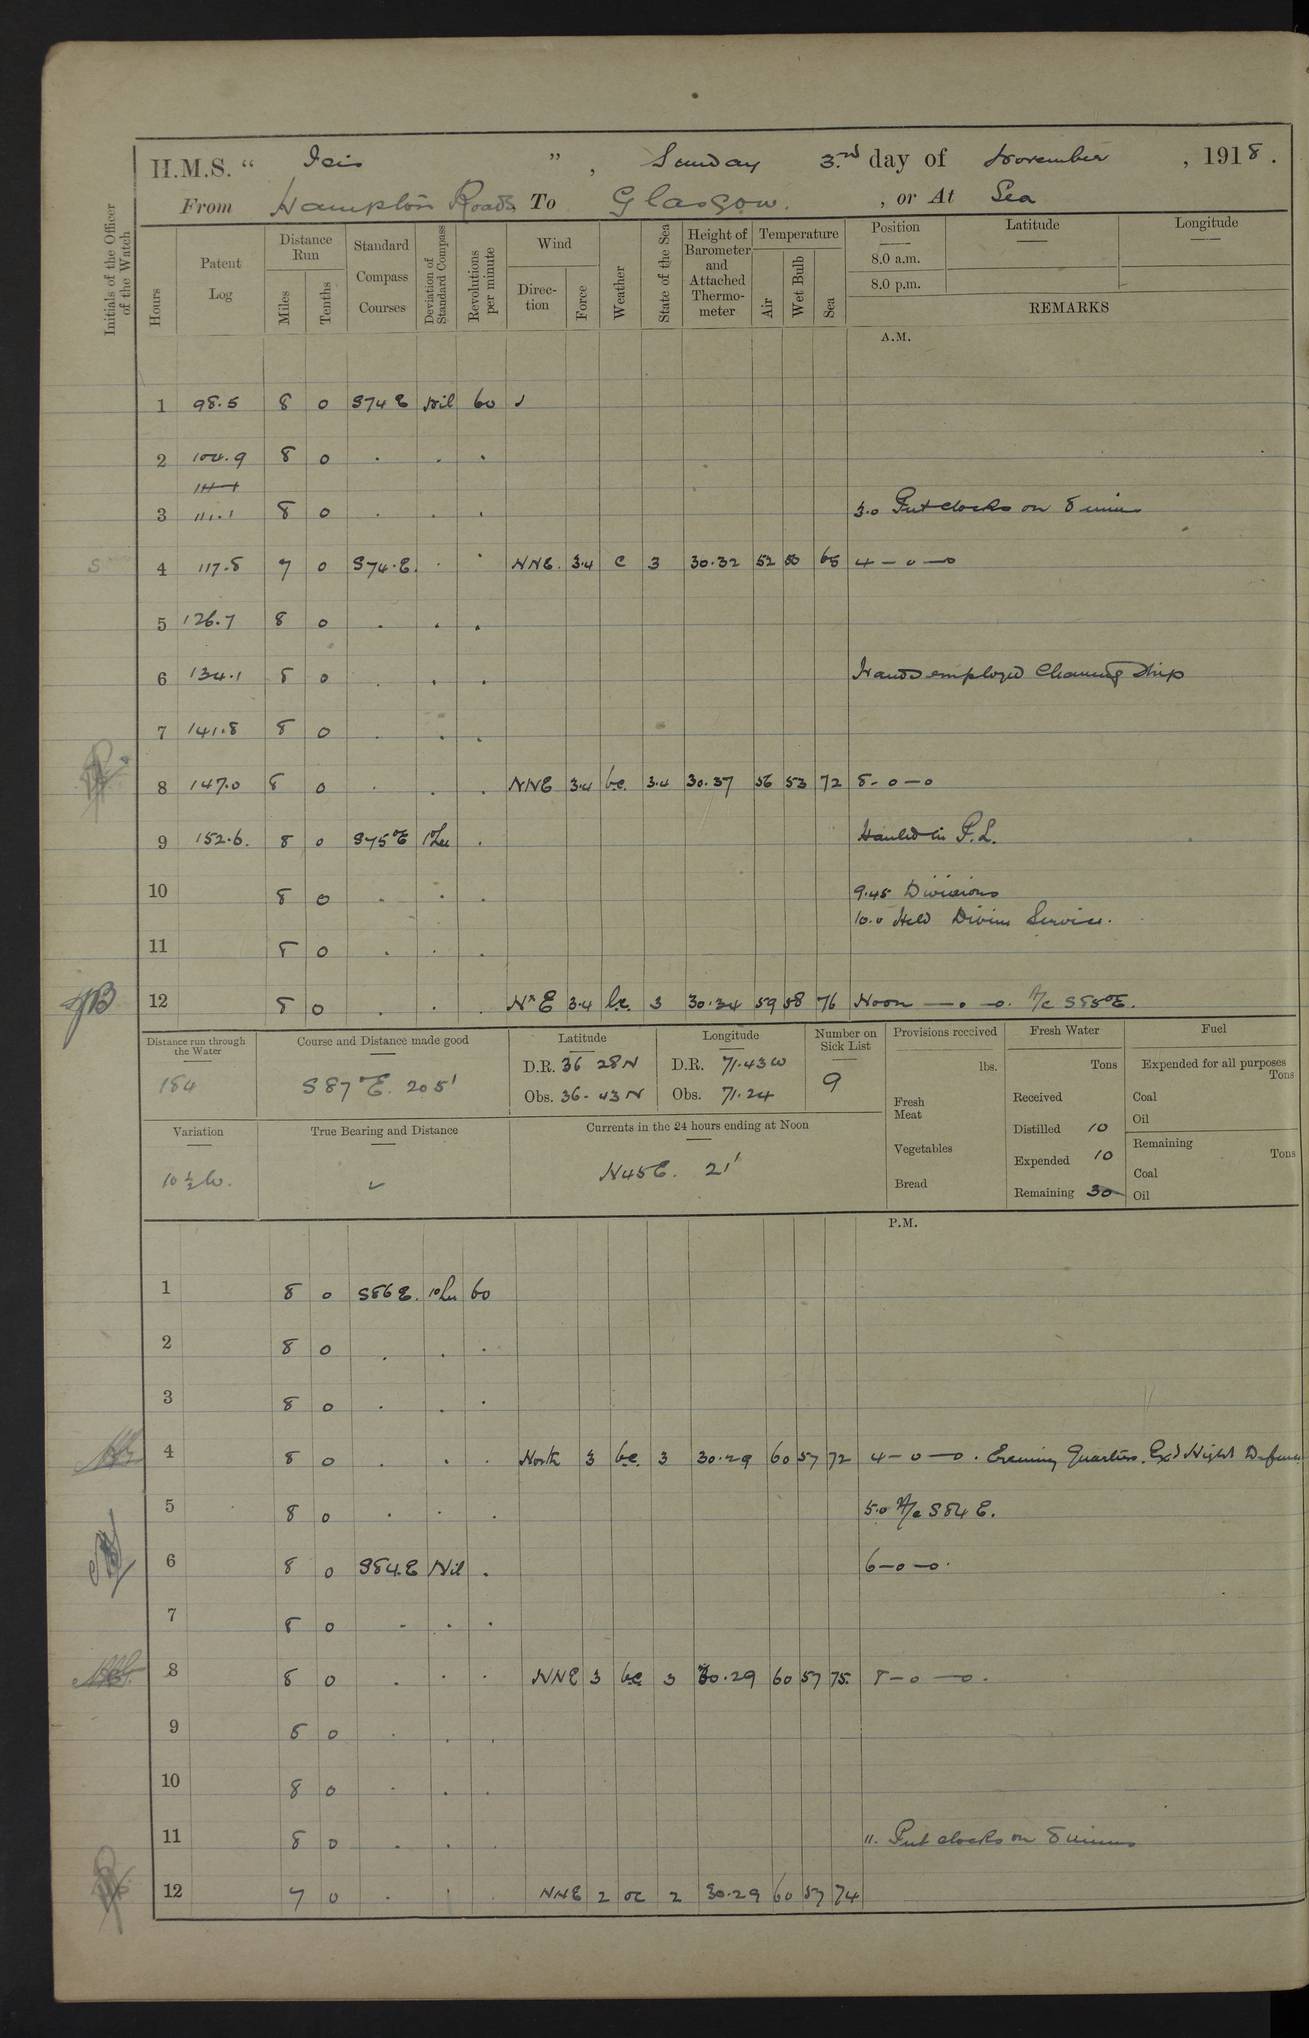 H.M.S. " Isis ", Sunday 3.rd day of November, 1918.
From Hampton Roads To Glasgow. , or At Sea
Initials of the Officer of the Watch
Hours Patent Log Distance Run Miles Tenths Standard Compass Courses Deviation of Standard Compass Revolutions per minute Wind Direction Force Weather State of the Sea Height of Barometer and Attached Thermometer Temperature Air Wet Bulb Sea
Position Latitude Longitude
8.0 a.m.
8.0 p.m.
REMARKS
A.M.
1 98.5 8 0 S74E Nil 60
2 104.9 8 0 . . .
3 111.1 8 0 . . . 3.0 Put clocks on 8 mins
4 117.8 7 0 S74.E. . . NNE. 3.4 c 3 30.32 52 50 65 4 - o - o
5 126.7 8 0 . . .
6 134.1 8 0 . . . Hands employed Cleaning Ship
7 141.8 8 0 . . .
8 147.0 8 0 . . . NNE 3.4 bc. 3.4 30.37 56 53 72 8 - o - o
9 152.6. 8 0 S75°E . Hauled in P.L.
10 8 0 . . . 9.45 Divisions
10.0 Held Divine Service.
11 8 0 . . .
12 8 0 . . . NxE 3.4 bc. 3 30.34 59 58 76 Noon - o - o. A/c S85°E.
Distance run through the Water
184
Course and Distance made good
S87°E. 205'
Latitude
D.R. 36 28N
Obs. 36-43N
Longitude
D.R. 71.43W
Obs. 71.24
Number on Sick List
9
Provisions received
lbs.
Fresh Meat
Vegetables
Bread
Fresh Water
Tons
Received
Distilled 10
Expended 10
Remaining 30
Fuel
Expended for all purposes
Tons
Coal
Oil
Remaining
Tons
Coal
Oil
Variation
10½W.
True Bearing and Distance
Currents in the 24 hours ending at Noon
N45E. 21'
P.M.
1 8 0 S86E. 60
2 8 0 . . .
3 8 0 . . .
4 8 0 . . . North 3 bc. 3 30.29 60 57 72 4 - o - o. Evening Quarters. Ex'd Night Defence
5 8 0 . . . 5.0 A/c S84E.
6 8 0 S84.E Nil . 6 - o - o.
7 8 0 - . .
8 8 0 . . . NNE 3 bc 3 30.29 60 57 75. 8 - o - o.
9 8 0 . . .
10 8 0 . . .
11 8 0 . . . 11. Put clocks on 8 mins
12 7 0 . . . NNE 2 oc 2 30.29 60 57 74